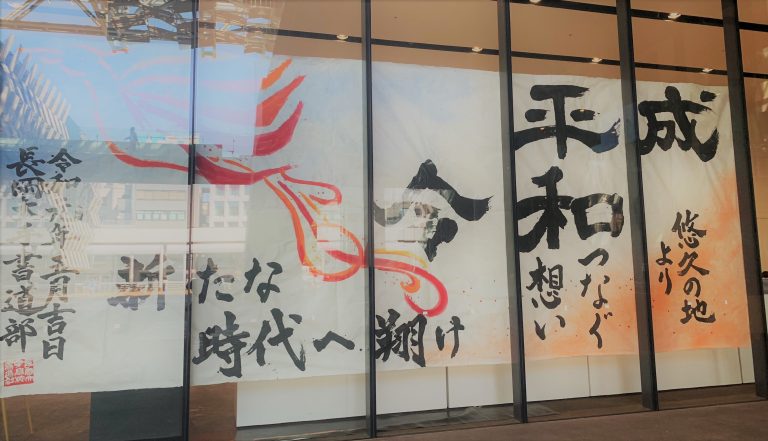 成
悠久の地
より
平和
つなぐ
想い
令
新たな
時代へ翔け
令和元年五月吉日
長岡大手書道部